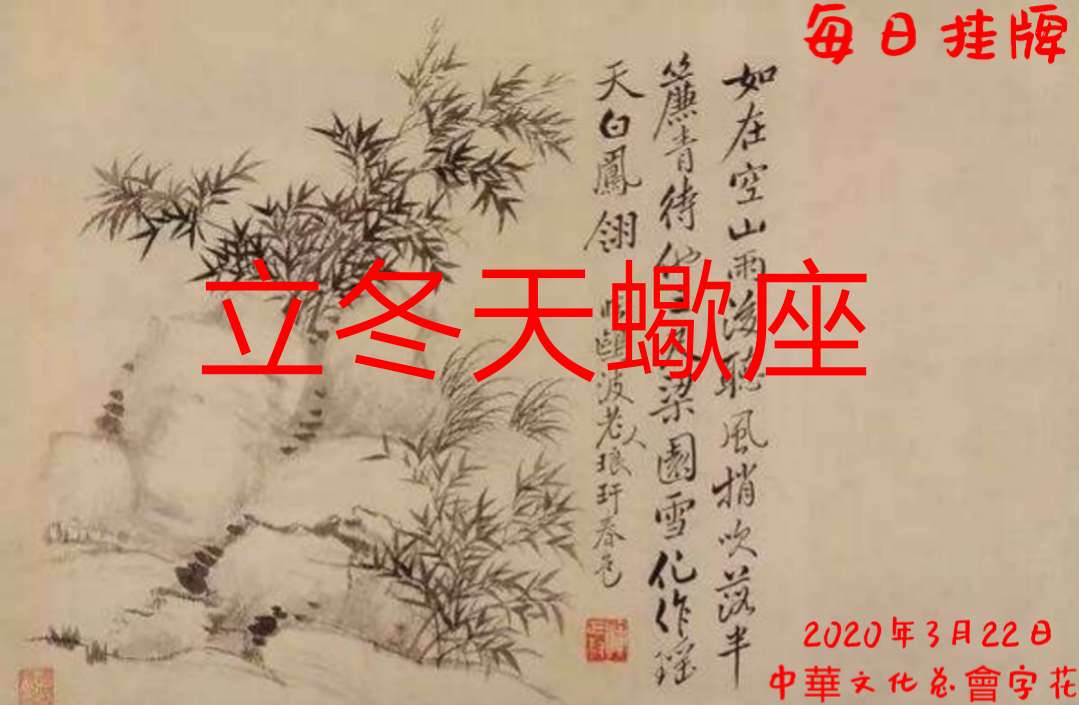 每日挂牌
如在空山雨後聽風梢吹落半
簾青待他日天梁園雪化作瑶
天白鳳翎
臨甌波老人琅玕春色
立冬天蠍座
2020年3月22日
中華文化总會字花